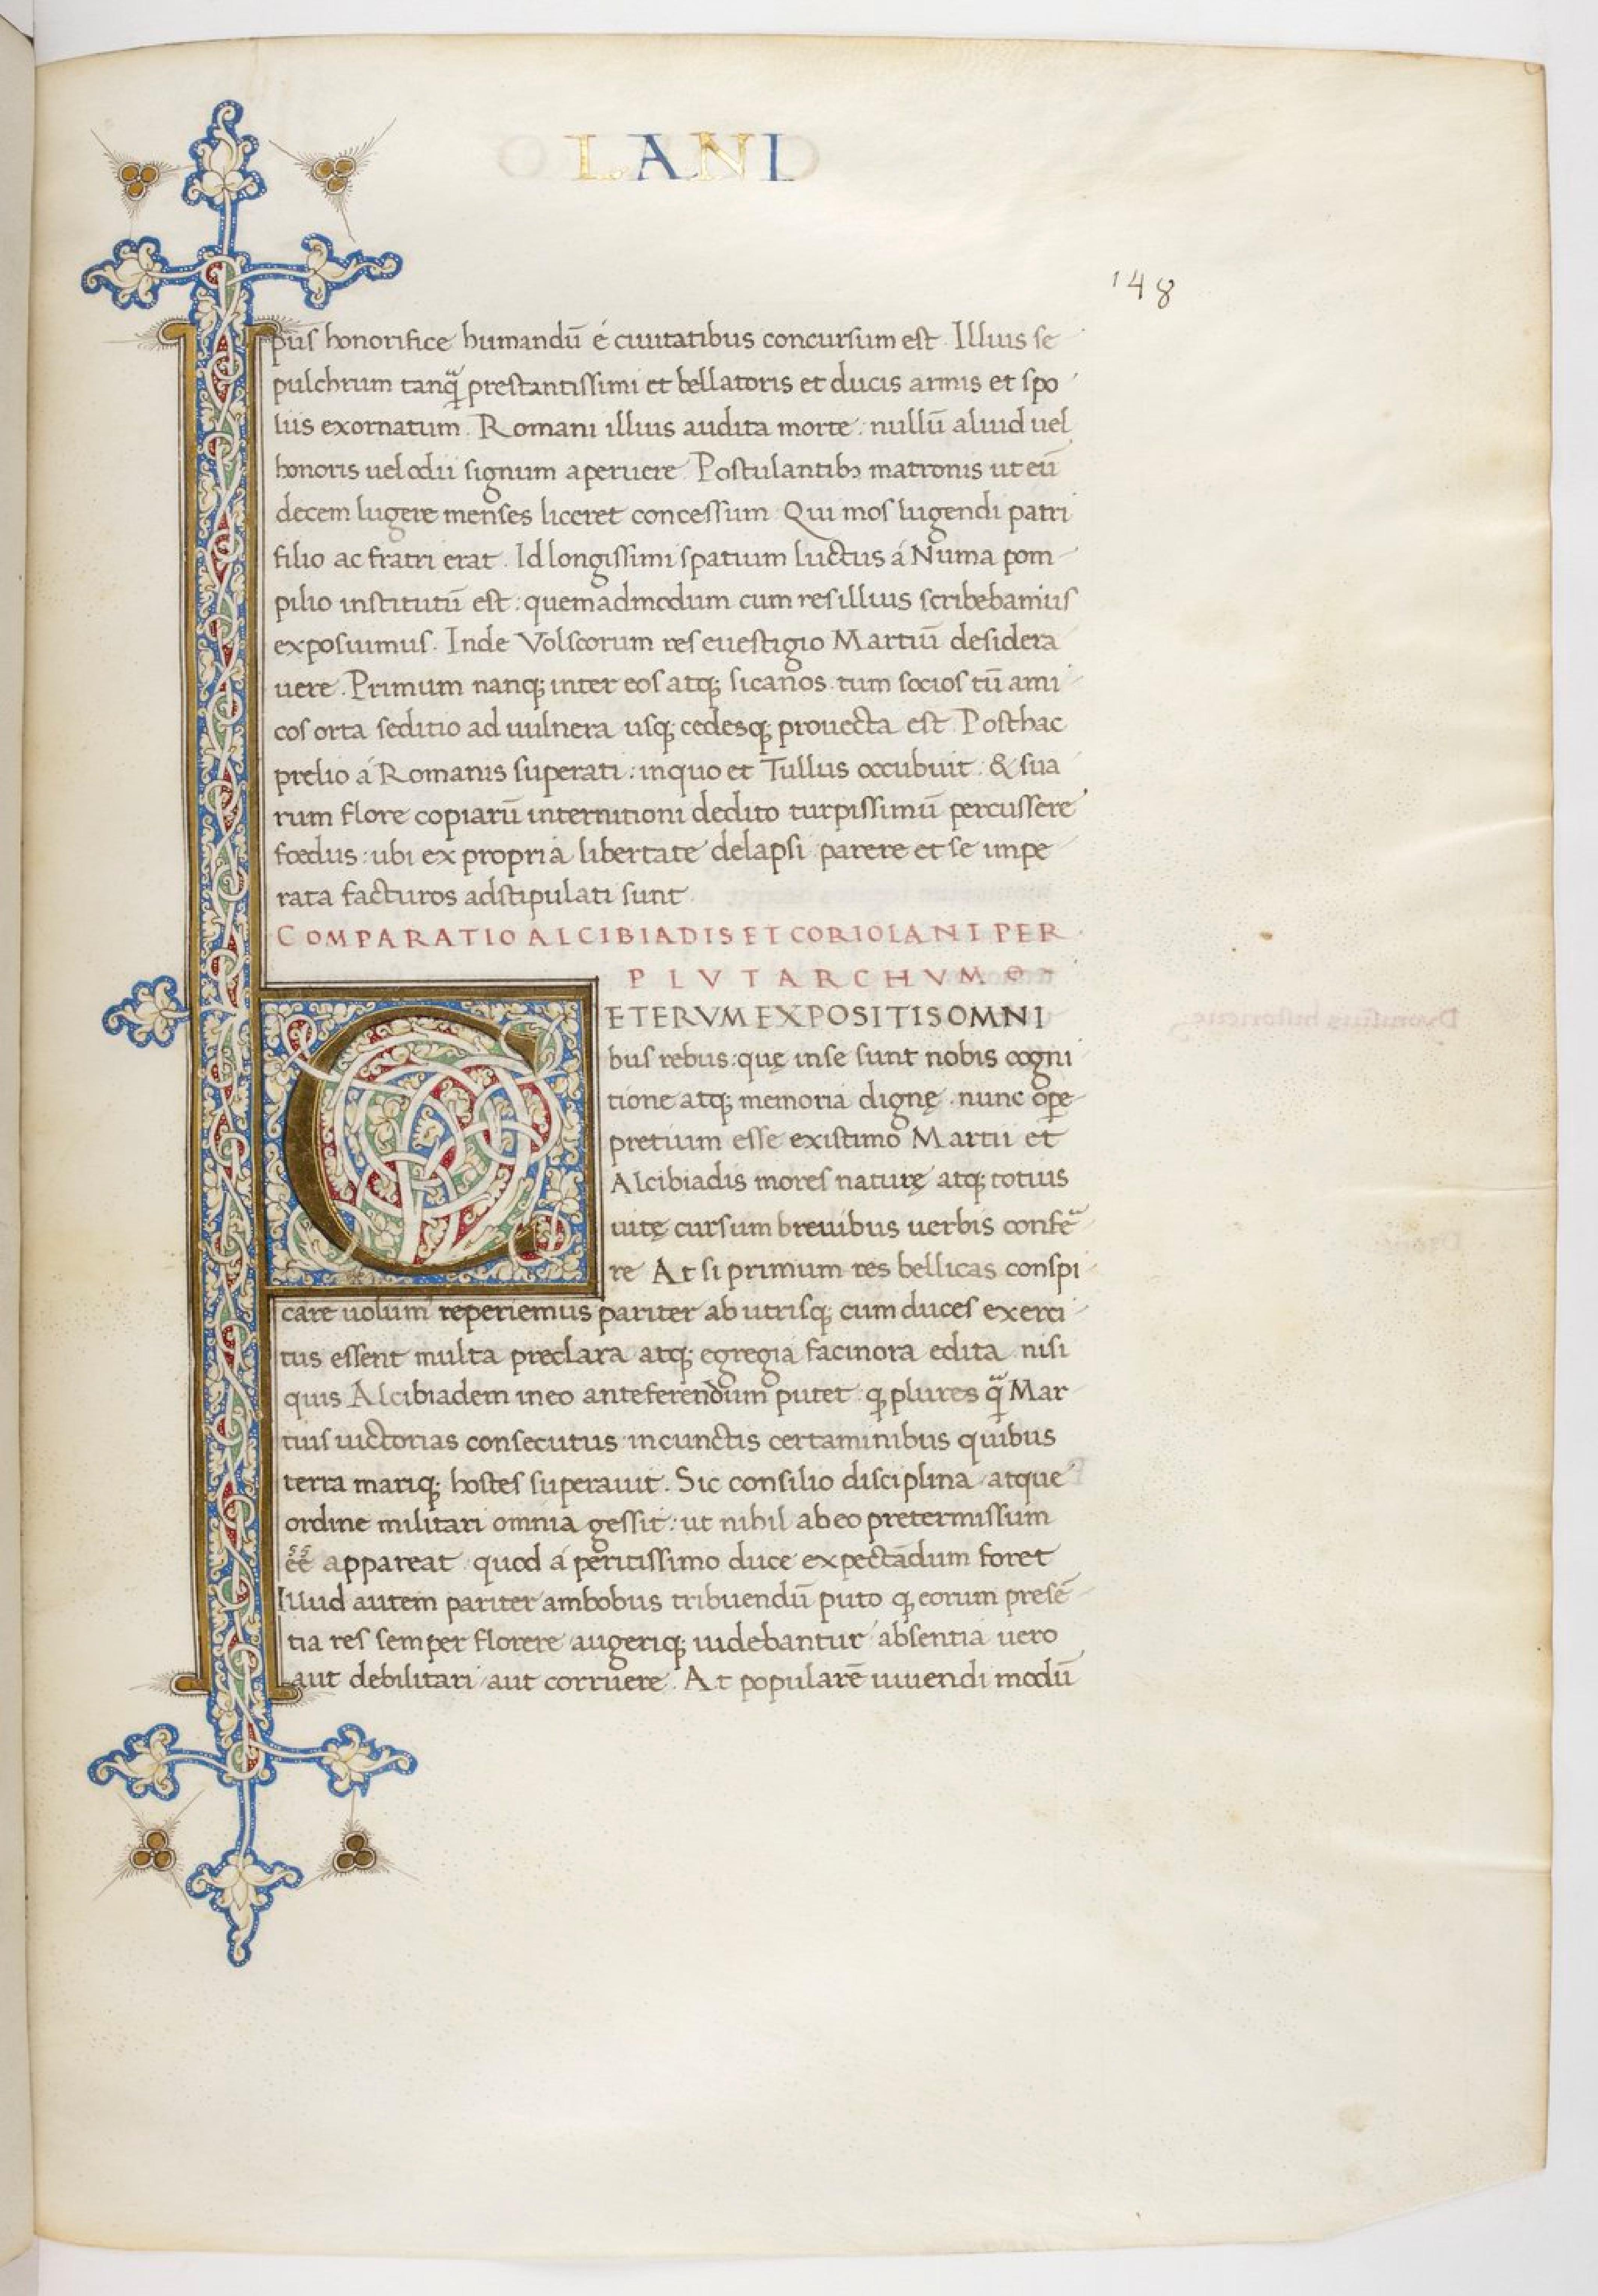 LANI
148
pus honorifice humandū é ciuitatibus concursum est. Illius se
pulchrum tanq̃ prestantissimi et bellatoris et ducis armis et spo
liis exornatum. Romani illius audita morte: nullū aliud uel
honoris uel odii signum aperuere. Postulantibꝫ matronis ut eū
decem lugere menses liceret concessum. Qui mos lugendi patri
filio ac fratri erat. Id longissimi spatium luctus á Numa pom
pilio institutū est: quemadmodum cum res illius scriberbamus
exposuimus. Inde Volscorum res euestigio Martiū desidera
uere. Primum nanq; inter eos atq; sicanos tum socios tū ami
cos orta seditio ad uulnera usq; cedesq; prouecta est. Posthac
prelio á Romanis superati: in quo et Tullus occubuit: & sua
rum flore copiarū internitioni dedito turpissimū percussere
fœdus: ubi ex propria libertate delapsi parere et se impe
rata facturos adstipulati sunt.
COMPARATIO ALCIBIADIS ET CORIOLANI PER
PLVTARCHVM
CETERVM EXPOSITIS OMNI
bus rebus: quę in se sunt nobis cogni
tione atq; memoria dignę nunc ope
pretium esse existimo Martii et
Alcibiadis mores naturę atq; totius
uitę cursum breuibus uerbis confer̄
re At si primum res bellicas conspi
care uolum' reperiemus pariter ab utrisq; cum duces exerci
tus essent multa preclara atq; egregia facinora edita nisi
quis Alcibiadem in eo anteferendum putet ꝙ plures q̃ Mar
tius uictorias consecutus in cunctis certaminibus quibus
terra mariq; hostes superauit. Sic consilio disciplina atque
ordine militari omnia gessit: ut nihil ab eo pretermissum
eē appareat quod á peritissimo duce expectādum foret
Illud autem pariter ambobus tribuendū puto ꝙ eorum presē
tia res semper florere augeriq; uidebantur absentia uero
aut debilitari aut corruere. At popularē uiuendi modū